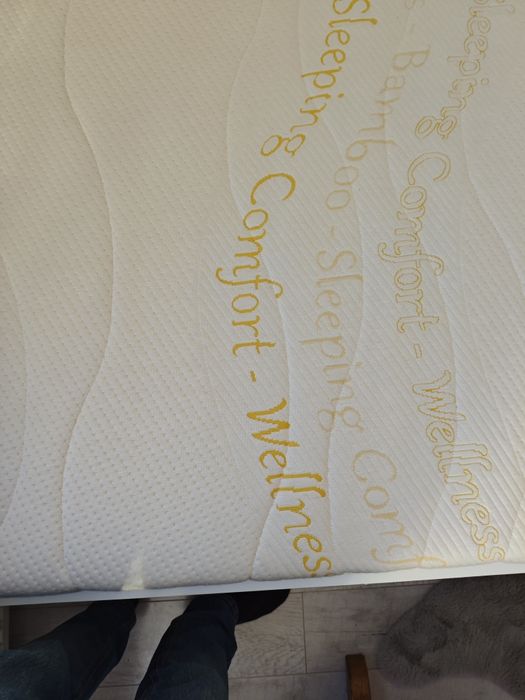 Sleeping Comfort - Wellness
s - Bamboo - Sleeping Comf
Sleeping Comfort - Wellness